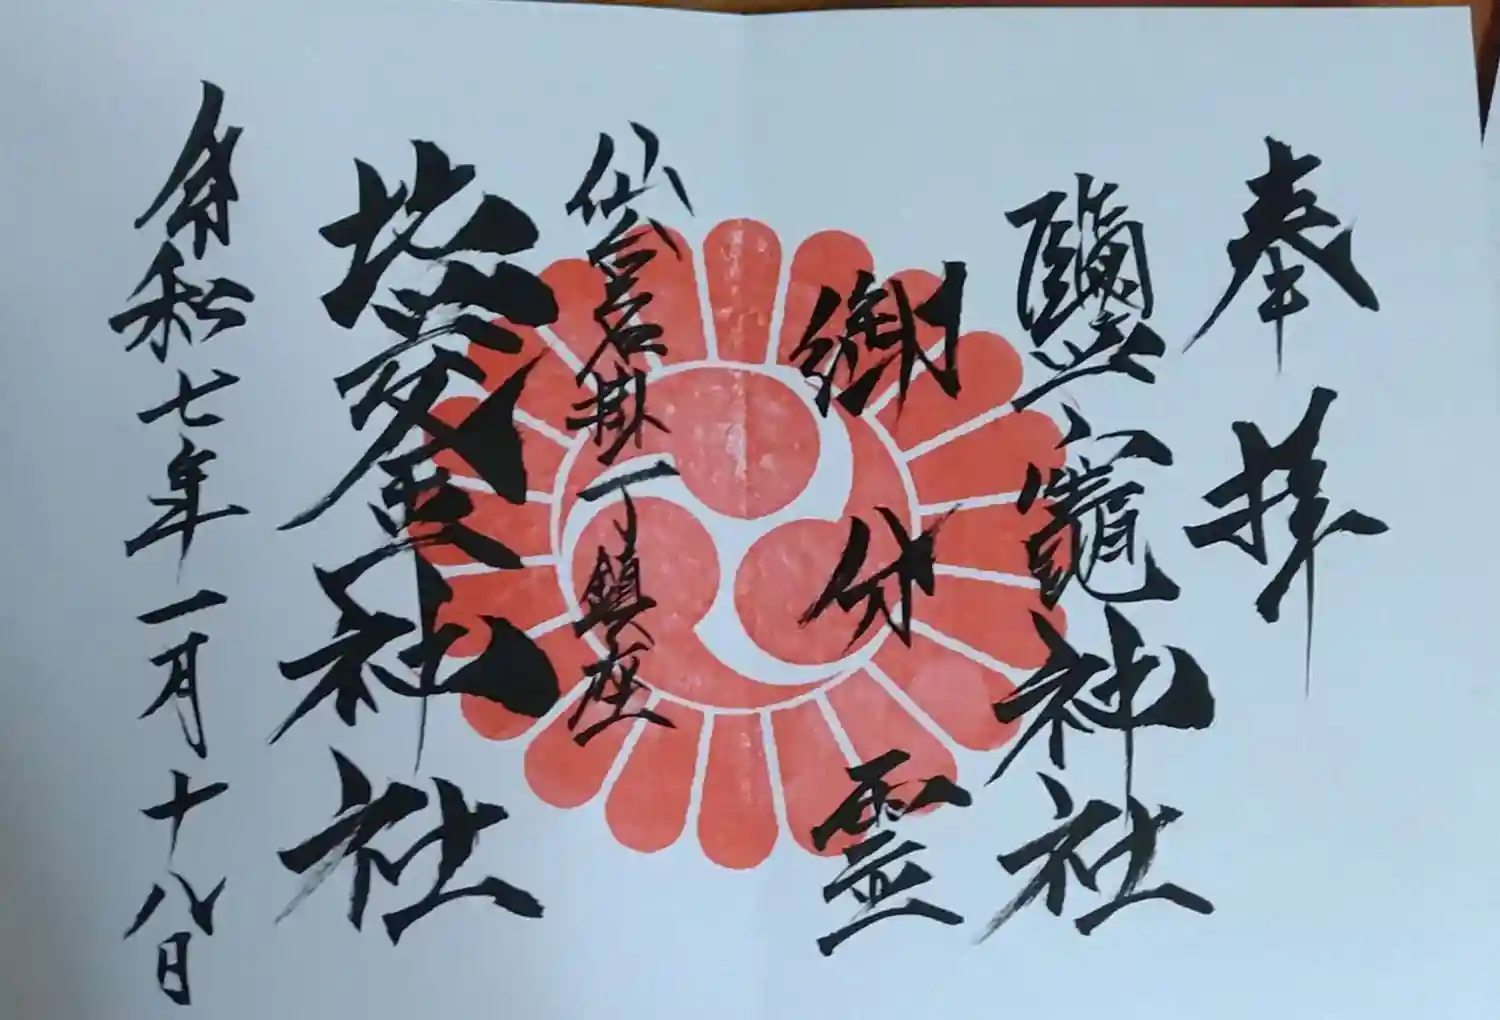 奉拝
鹽竈神社
御分霊
仙台名掛丁鎮座
神社
令和七年一月十八日